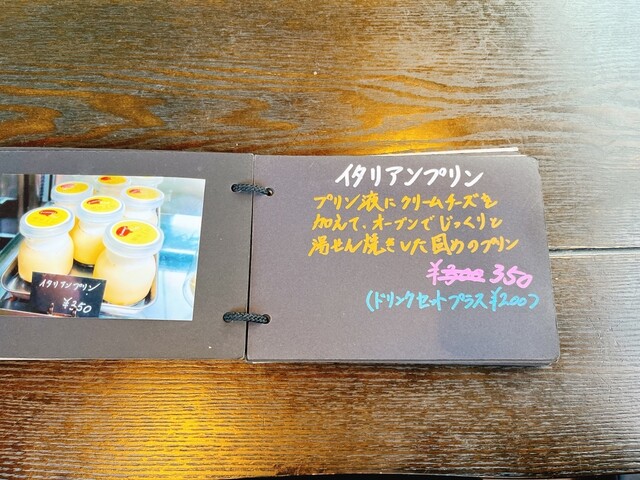 イタリアンプリン
¥350
イタリアンプリン
プリン液にクリームチーズを
加えて、オーブンでじっくりと
湯せん焼きした固めのプリン
¥300 350
(ドリンクセットプラス¥200)